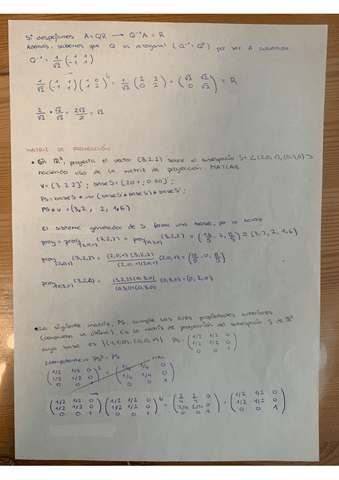 Si despejamos A=QR → Q⁻¹A = R
Además, sabemos que Q es ortogonal (Q⁻¹ = Qᵗ) por ser A cuadrada
Q⁻¹ = 1/√2 (1 1; -1 1)
1/√2 (1 1; -1 1) (1 0; 1 2) = 1/√2 (2 2; 0 2) = (√2 √2; 0 √2) = R
2/√2 · √2/√2 = 2√2/2 = √2
MATRIZ DE PROYECCIÓN
• En ℝ³, proyecta el vector (3,2,2) sobre el subespacio S = <(2,0,1), (0,3,0)>
haciendo uso de la matriz de proyección. MATLAB
v = [3 2 2]'; baseS = [2 0 1; 0 3 0]';
PS = baseS * inv (baseS' * baseS) * baseS';
PS * v = (3,2, 2, 1,6)
El sistema generador de S forma una base, por lo tanto
(3,2,2) = (2,0,1)(3,2,2) / (2,0,1)(2,0,1) (2,0,1) = (16/5, 0, 8/5)
(3,2,2) = (3,2,2)(0,3,0) / (0,3,0)(0,3,0) (0,3,0) = (0,2,0)
• La siguiente matriz, PS, cumple las tres propiedades anteriores
(comprueba la última). Es la matriz de proyección del subespacio S de ℝ³
cuya base es {(1,1,0), (0,0,1)} PS = (1/2 1/2 0; 1/2 1/2 0; 0 0 1)
Idempotente → PS² = PS
(1/2 1/2 0; 1/2 1/2 0; 0 0 1)² = (1/4 1/4 0; 1/4 1/4 0; 0 0 1)
(1/2 1/2 0; 1/2 1/2 0; 0 0 1) (1/2 1/2 0; 1/2 1/2 0; 0 0 1) = (2/4 2/4 0; 2/4 2/4 0; 0 0 1) = (1/2 1/2 0; 1/2 1/2 0; 0 0 1)